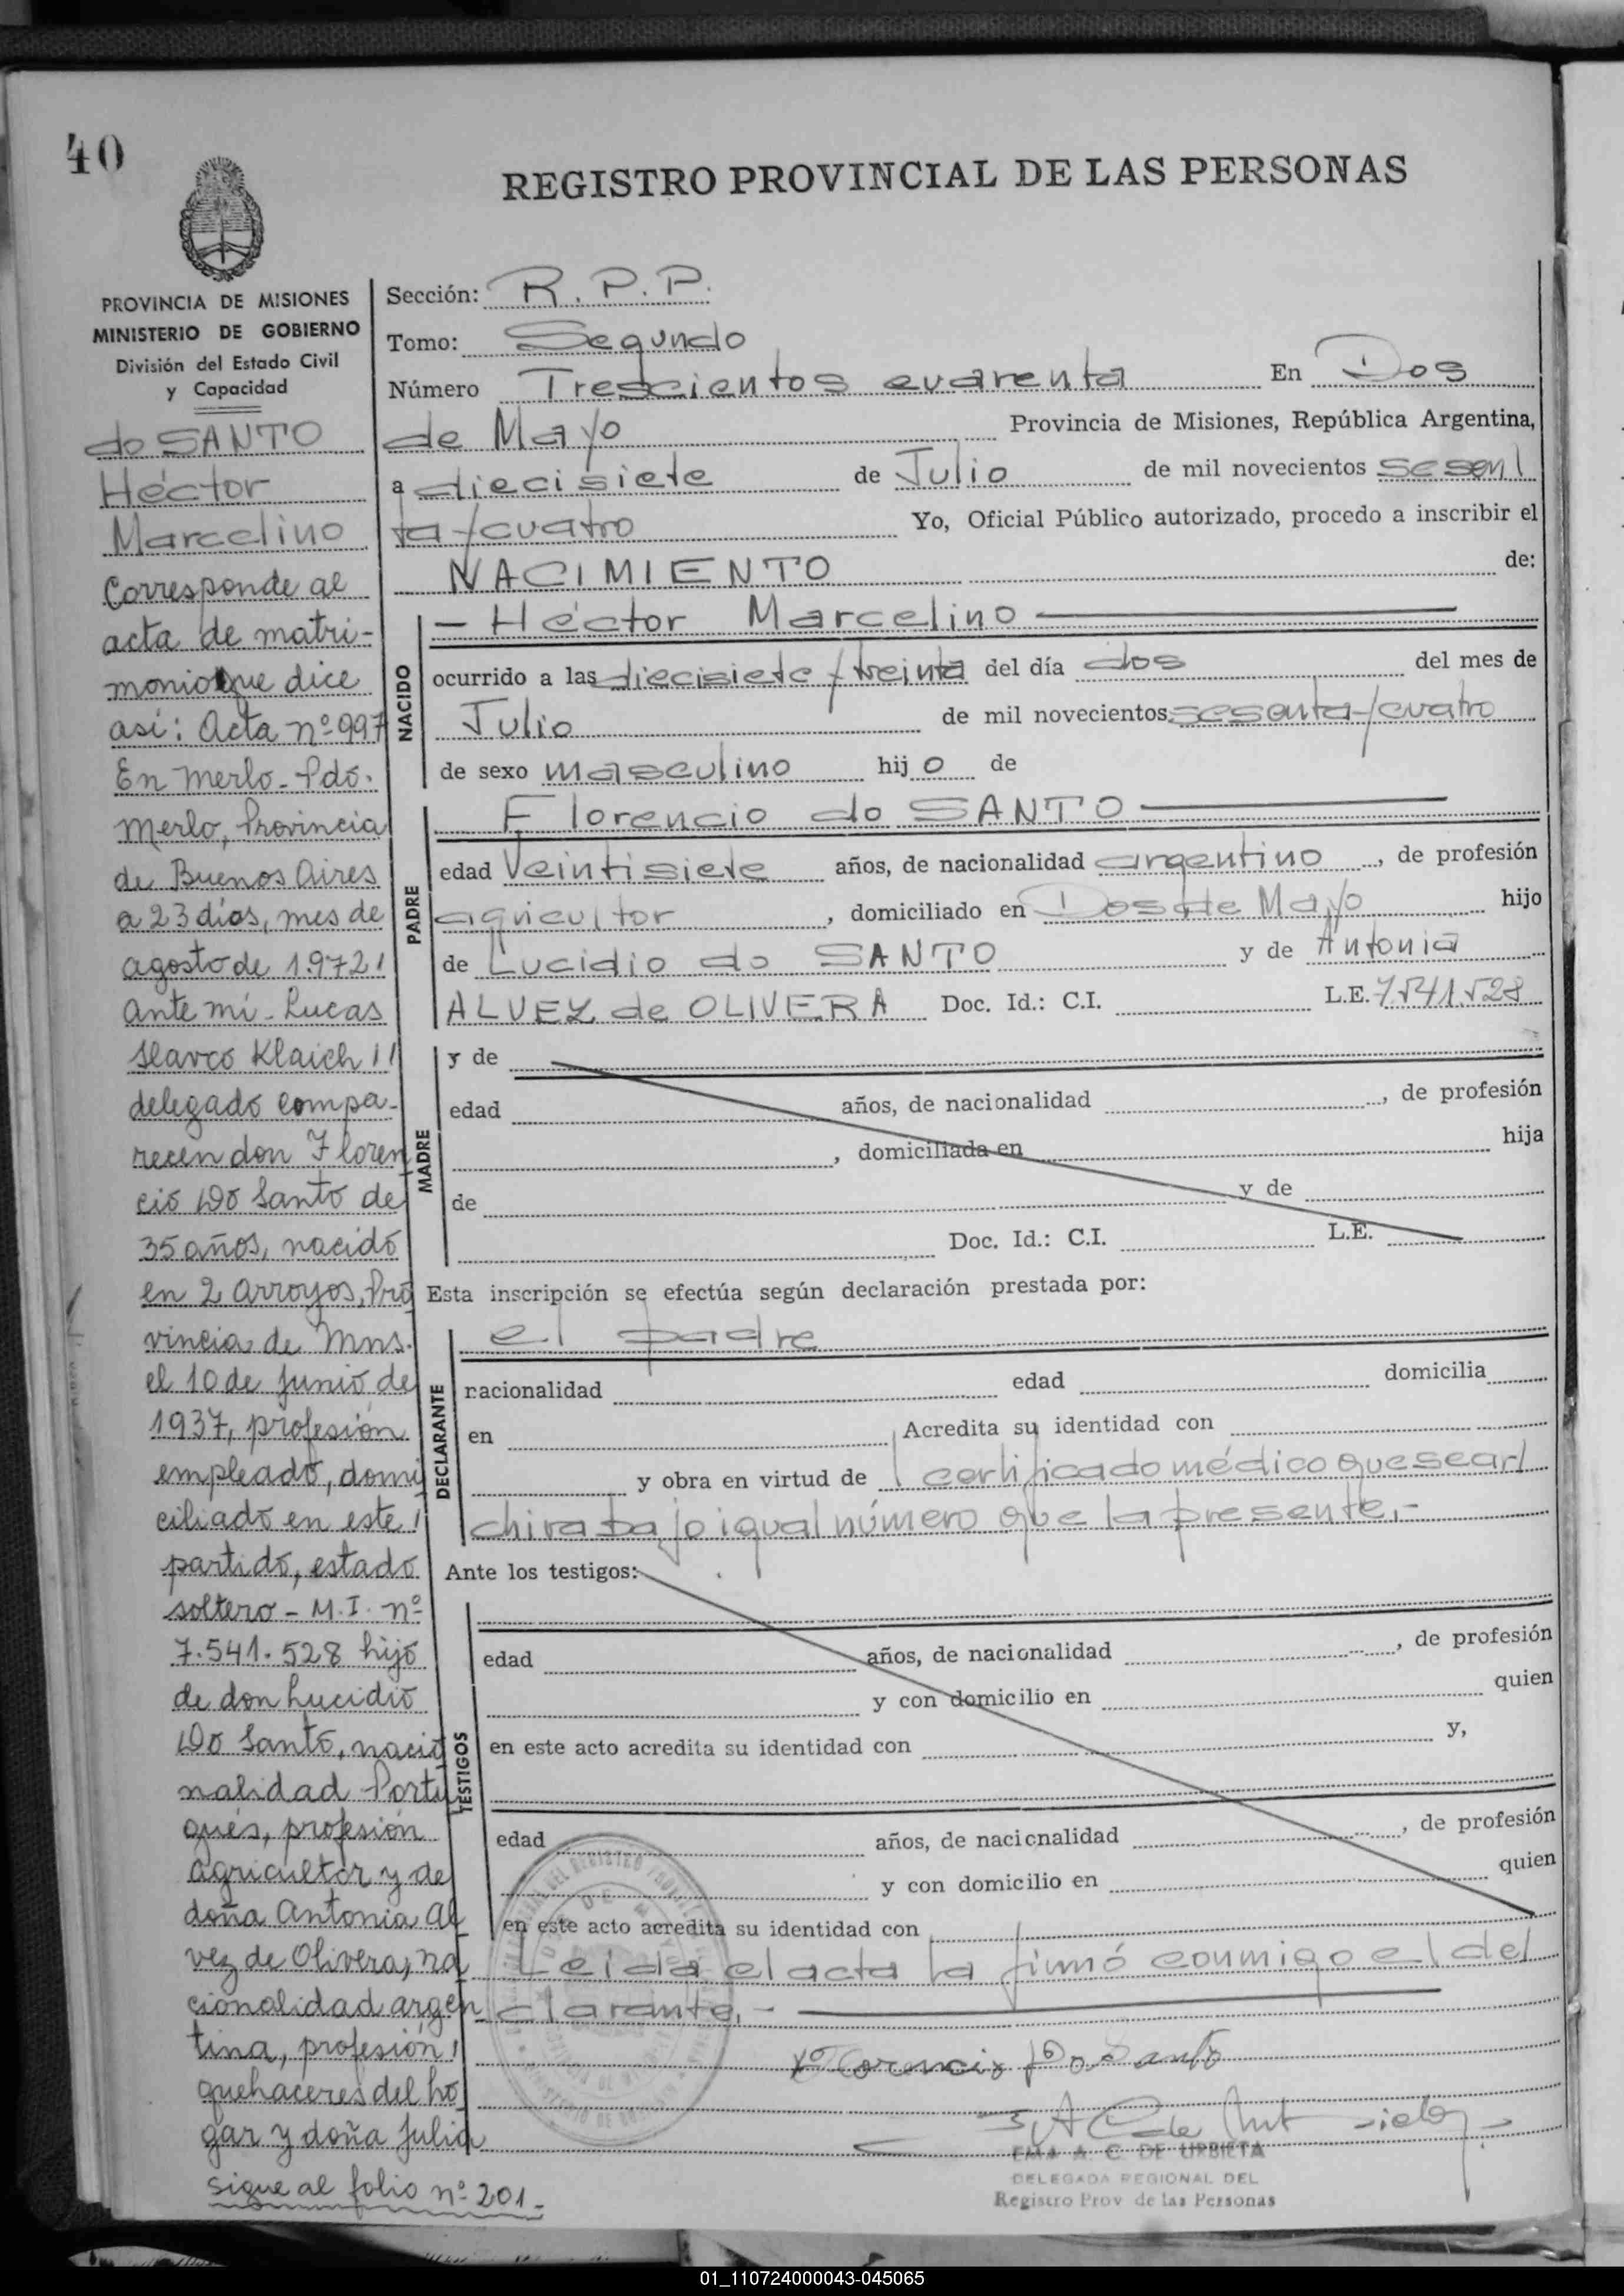 40
REGISTRO PROVINCIAL DE LAS PERSONAS
PROVINCIA DE MISIONES
MINISTERIO DE GOBIERNO
División del Estado Civil
y Capacidad
do SANTO
Héctor
Marcelino
Corresponde al
acta de matri-
monio que dice
así: Acta nº 997
En Merlo - Pdo.
Merlo, Provincia
de Buenos Aires
a 23 días, mes de
agosto de 1972/
ante mí - Lucas
Slavco Klaich //
delegado compa-
recen don Floren
cio Do Santo de
35 años, nacido
en 2 Arroyos, Pro
vincia de Mns.
el 10 de Junio de
1937, profesión
empleado, domi
ciliado en este /
partido, estado
soltero - M.I. nº
7.541.528 hijo
de don Lucidio
Do Santo, nacio
nalidad Portu
gués, profesión
agricultor y de
doña Antonia Al
vez de Olivera, na
cionalidad argen
tina, profesión /
quehaceres del ho
gar y doña Julia
sigue al folio nº 201.-
Sección: R. P. P.
Tomo: Segundo
Número Trescientos cuarenta En Dos
de Mayo Provincia de Misiones, República Argentina,
a diecisiete de Julio de mil novecientos sesen/
ta/cuatro Yo, Oficial Público autorizado, procedo a inscribir el
NACIMIENTO de:
NACIDO
- Héctor Marcelino
ocurrido a las diecisiete/treinta del día dos del mes de
Julio de mil novecientos sesenta/cuatro
de sexo masculino hijo de
PADRE
Florencio do SANTO
edad Veintisiete años, de nacionalidad argentino, de profesión
agricultor, domiciliado en Dos de Mayo hijo
de Lucidio do SANTO y de Antonia
ALVEZ de OLIVERA Doc. Id.: C.I. L.E. 7541528
MADRE
y de
edad años, de nacionalidad , de profesión
, domiciliada en hija
de y de
Doc. Id.: C.I. L.E.
Esta inscripción se efectúa según declaración prestada por:
DECLARANTE
el padre
nacionalidad edad domicilia
en Acredita su identidad con
y obra en virtud de certificado médico que se ar/
chiva bajo igual número que la presente.-
Ante los testigos:
TESTIGOS
edad años, de nacionalidad , de profesión
y con domicilio en quien
en este acto acredita su identidad con y,
edad años, de nacionalidad , de profesión
y con domicilio en quien
en este acto acredita su identidad con
Leída el acta la firmó conmigo el de/
clarante.-
Florencio Do Santo
EMA A. C. DE URBIETA
DELEGADA REGIONAL DEL
Registro Prov de las Personas
01_110724000043-045065